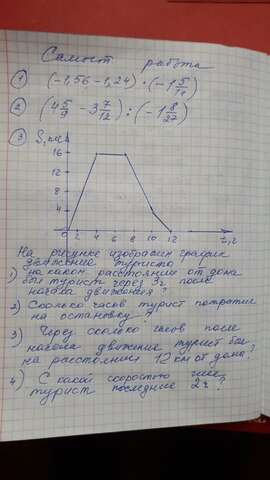 Самост работа
① (-1,56-1,24) · (-1 5/11)
② (4 5/9 - 3 7/12) : (-1 8/27)
③ S, км
16
12
8
4
0 2 4 6 8 10 12 t, г
На рисунке изображён график
движения туриста
1) на каком расстоянии от дома
был турист через 3г после
начала движения?
2) Сколько часов турист потратил
на остановку?
3) Через сколько часов после
начала движения турист был
на расстоянии 12 км от дома?
4) С какой скоростью шёл
турист последние 2ч?